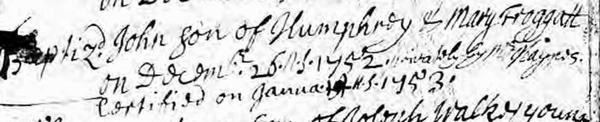 on Decem
Baptizd John son of Humphrey & Mary Froggatt
on Decembr. 26.th. 1752 privately by mr. Haynes.
Certified on January th. 1753.
son of Joseph Walker young